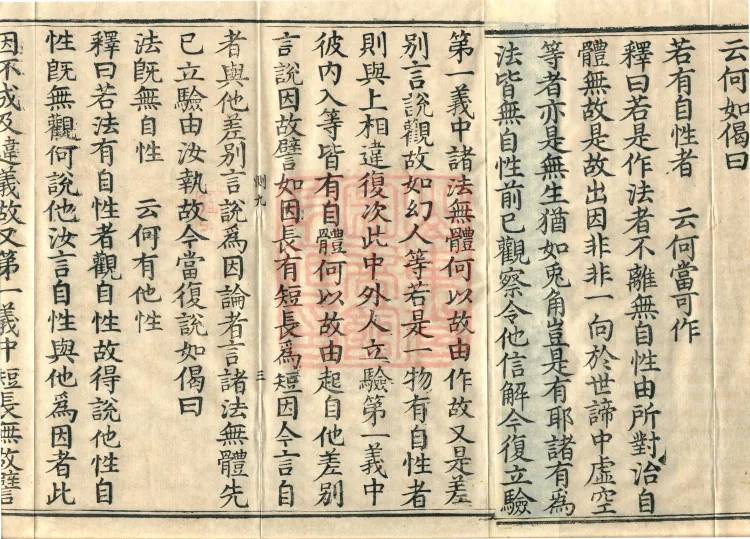 云何如偈曰
若有自性者　云何當可作
釋曰若是作法者不離無自性由所對治自
體無故是故出因非非一向於世諦中虛空
等者亦是無生猶如兎角豈是有耶諸有為
法皆無自性前已觀察令他信解今復立驗
第一義中諸法無體何以故由作故又是差
別言說觀故如幻人等若是一物有自性者
則與上相違復次此中外人立驗第一義中
彼內入等皆有自體何以故由起自他差別
言說因故譬如因長有短長為短因今言自
惻九　三
者與他差別言說為因論者言諸法無體先
已立驗由汝執故今當復說如偈曰
法旣無自性　云何有他性
釋曰若法有自性者觀自性故得說他性自
性旣無觀何說他汝言自性與他為因者此
因不成及違義故又第一義中短長無故譬